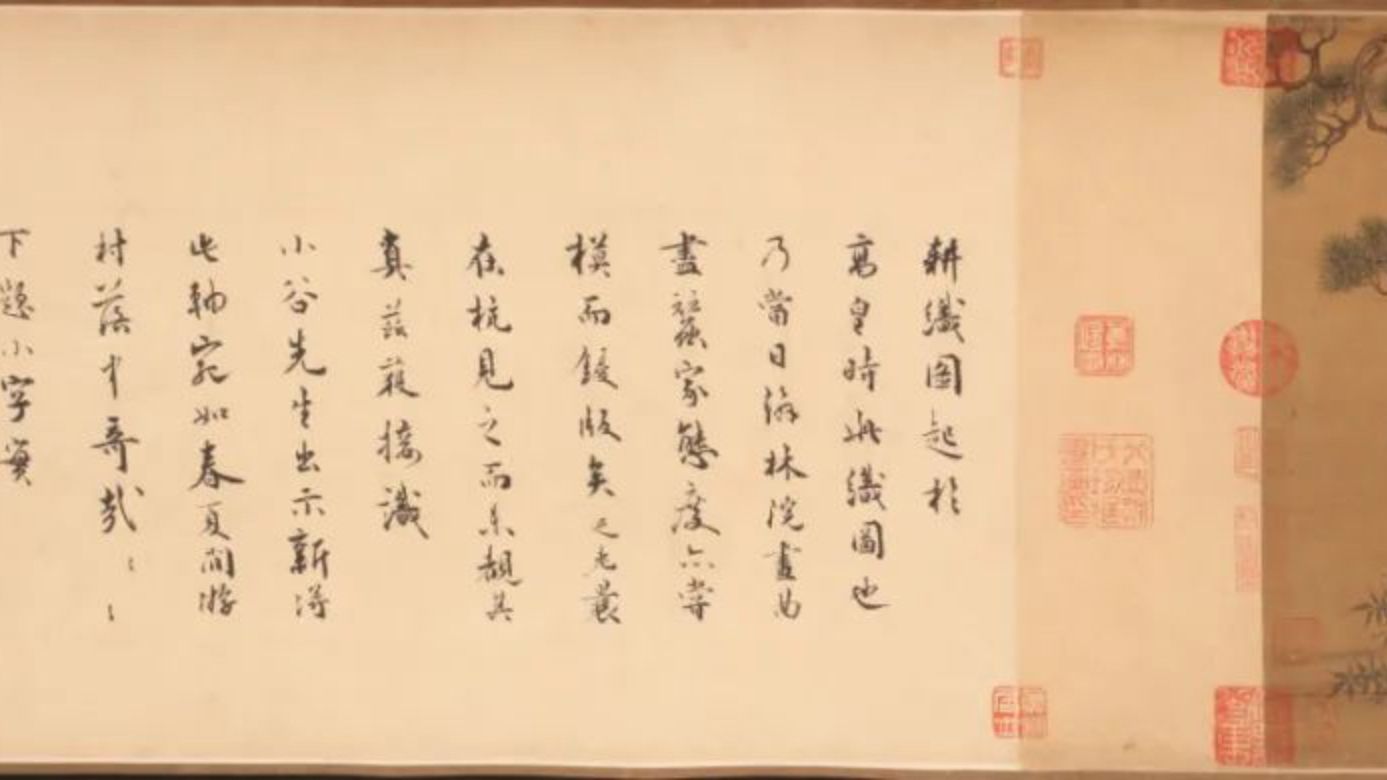 耕織圖起於
高皇時此織圖也
乃當日翰林院畫曲
盡蠶家態度亦嘗
模而鋟版矣足老曩
在杭見之而未覩其
真兹獲接識
小谷先生出示新得
此軸宛如春夏間游
村落中奇哉〻〻
下題小字實